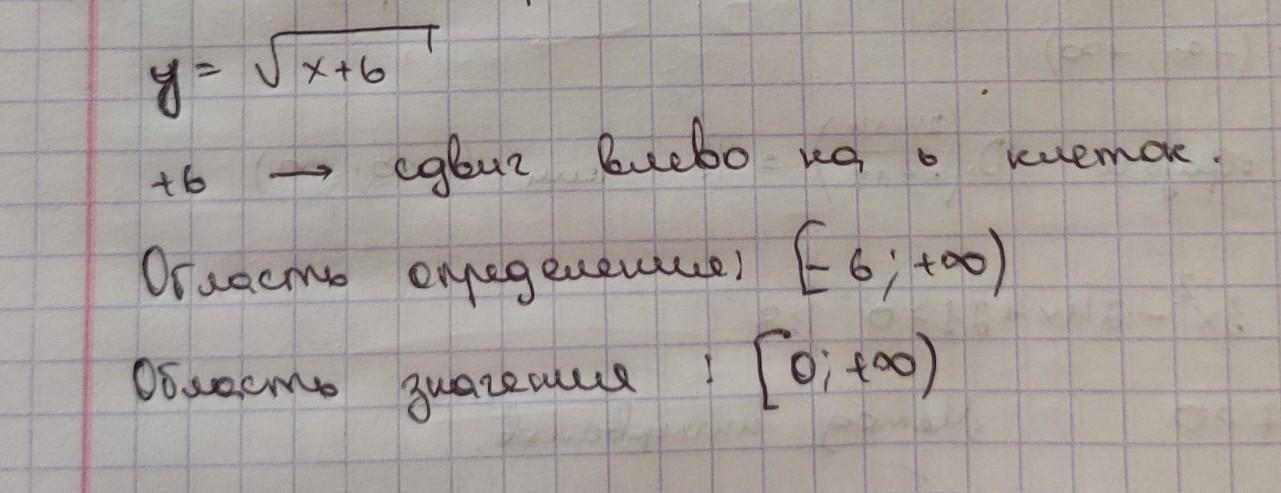 y = √x+6
+6 → сдвиг влево на 6 клеток.
Область определения: [-6; +∞)
Область значения : [0; +∞)